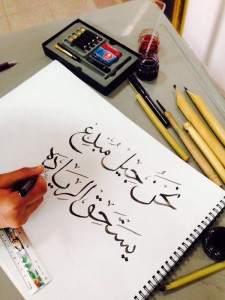 نحن جيل مبدع
يستحق الريادة